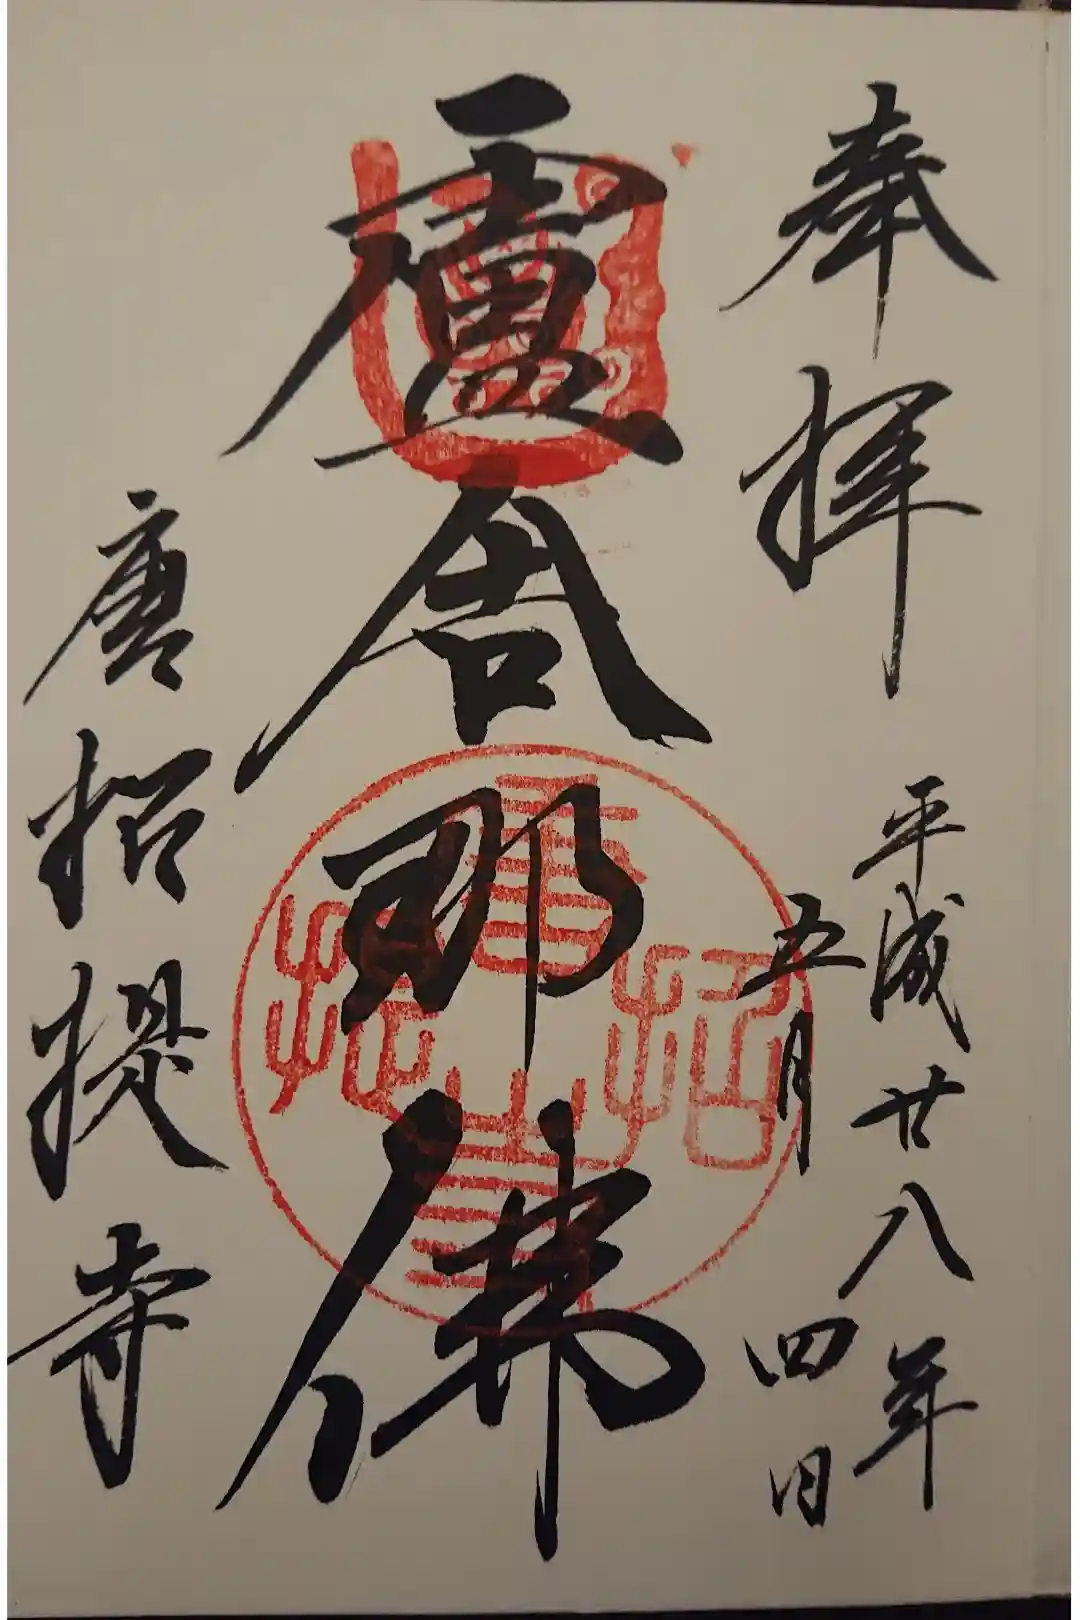 奉拝
平成廿八年
五月四日
盧舎那佛
唐招提寺